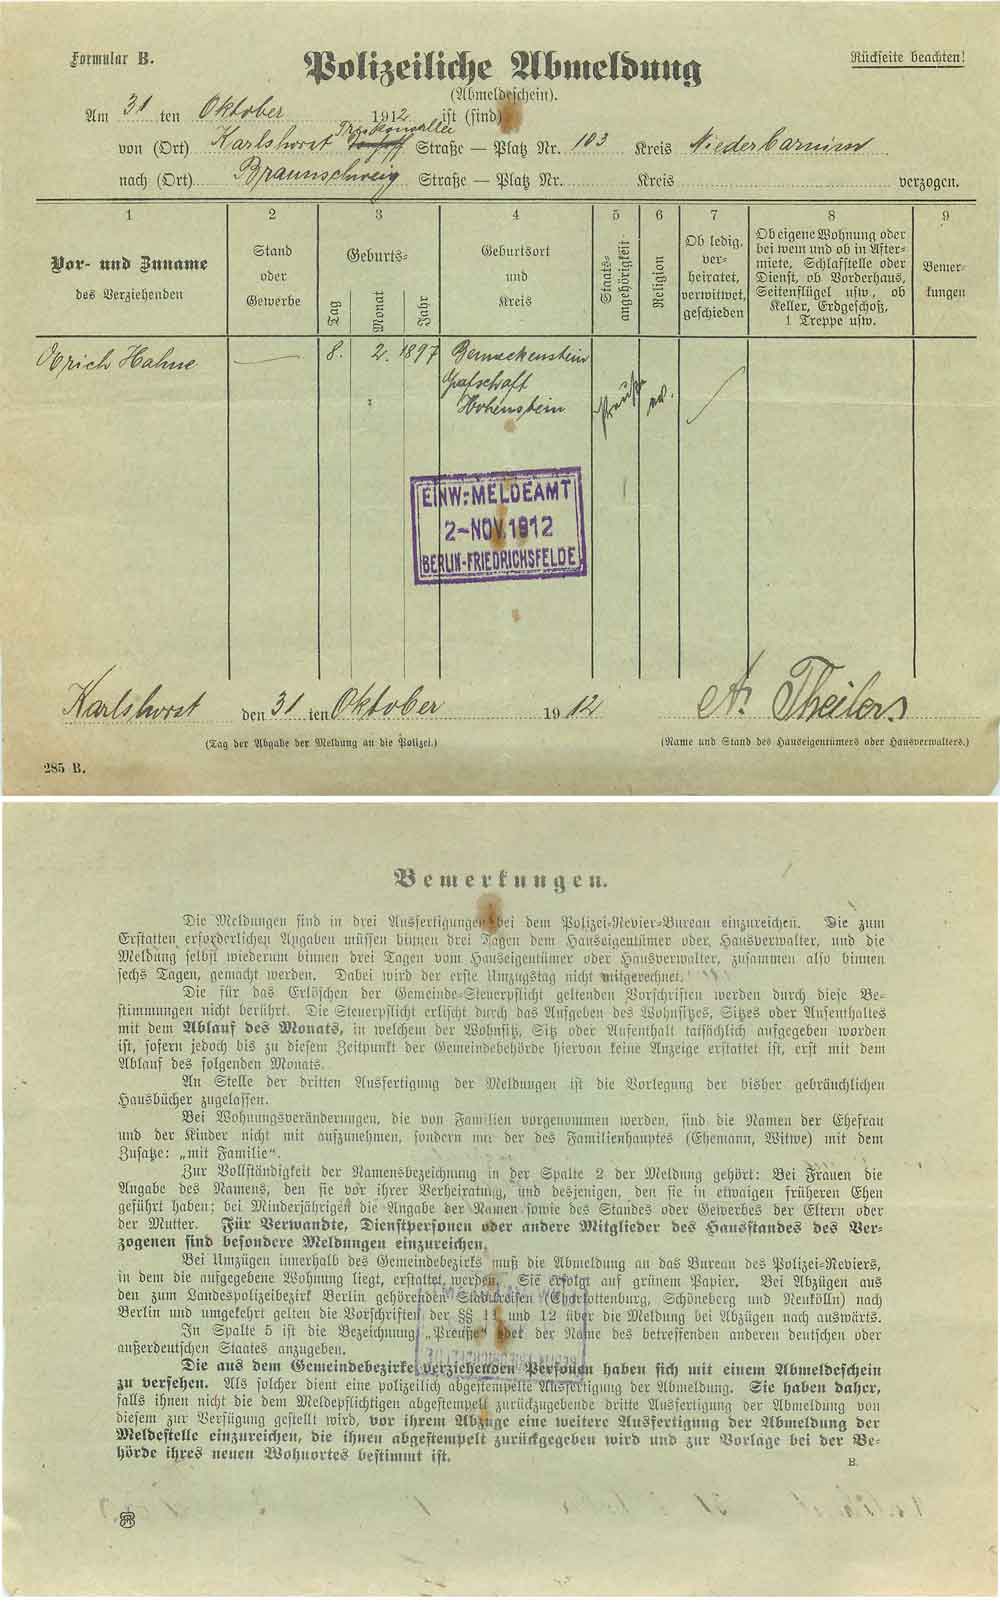 Formular B.
Polizeiliche Abmeldung
Rückseite beachten!
(Abmeldeschein).
Am 31 ten Oktober 1912 ist (sind)
von (Ort) Karlshorst Treskowallee Straße — Platz Nr. 103 Kreis Niederbarnim
nach (Ort) Braunschweig Straße — Platz Nr. Kreis verzogen.
1 2 3 4 5 6 7 8 9
Vor- und Zuname
des Verziehenden
Stand
oder
Gewerbe
Geburts-
Tag
Monat
Jahr
Geburtsort
und
Kreis
Staats-
angehörigkeit
Religion
Ob ledig,
ver-
heiratet,
verwitwet,
geschieden
Ob eigene Wohnung oder
bei wem und ob in After-
miete, Schlafstelle oder
Dienst, ob Vorderhaus,
Seitenflügel usw., ob
Keller, Erdgeschoß,
1 Treppe usw.
Bemer-
kungen
Erich Hahne — 8. 2. 1897 Benneckenstein
Grafschaft
Hohenstein
Preuße
ev.
EINW.-MELDEAMT
2-NOV.1912
BERLIN-FRIEDRICHSFELDE
Karlshorst den 31 ten Oktober 1912 A. Theilers
(Tag der Abgabe der Meldung an die Polizei.)
(Name und Stand des Hauseigentümers oder Hausverwalters.)
285 B.
Bemerkungen.
Die Meldungen sind in drei Ausfertigungen bei dem Polizei-Revier-Bureau einzureichen. Die zum
Erstatten erforderlichen Angaben müssen binnen drei Tagen dem Hauseigentümer oder Hausverwalter, und die
Meldung selbst wiederum binnen drei Tagen vom Hauseigentümer oder Hausverwalter, zusammen also binnen
sechs Tagen, gemacht werden. Dabei wird der erste Umzugstag nicht mitgerechnet.
Die für das Erlöschen der Gemeinde-Steuerpflicht geltenden Vorschriften werden durch diese Be-
stimmungen nicht berührt. Die Steuerpflicht erlischt durch das Aufgeben des Wohnsitzes, Sitzes oder Aufenthaltes
mit dem Ablauf des Monats, in welchem der Wohnsitz, Sitz oder Aufenthalt tatsächlich aufgegeben worden
ist, sofern jedoch bis zu diesem Zeitpunkt der Gemeindebehörde hiervon keine Anzeige erstattet ist, erst mit dem
Ablauf des folgenden Monats.
An Stelle der dritten Ausfertigung der Meldungen ist die Vorlegung der bisher gebräuchlichen
Hausbücher zugelassen.
Bei Wohnungsveränderungen, die von Familien vorgenommen werden, sind die Namen der Ehefrau
und der Kinder nicht mit aufzunehmen, sondern nur der des Familienhauptes (Ehemann, Witwe) mit dem
Zusatze: „mit Familie“.
Zur Vollständigkeit der Namensbezeichnung in der Spalte 2 der Meldung gehört: Bei Frauen die
Angabe des Namens, den sie vor ihrer Verheiratung, und desjenigen, den sie in etwaigen früheren Ehen
geführt haben; bei Minderjährigen die Angabe der Namen sowie des Standes oder Gewerbes der Eltern oder
der Mutter. Für Verwandte, Dienstpersonen oder andere Mitglieder des Hausstandes des Ver-
zogenen sind besondere Meldungen einzureichen.
Bei Umzügen innerhalb des Gemeindebezirks muß die Abmeldung an das Bureau des Polizei-Reviers,
in dem die aufgegebene Wohnung liegt, erstattet werden. Sie erfolgt auf grünem Papier. Bei Abzügen aus
den zum Landespolizeibezirk Berlin gehörenden Stadtkreisen (Charlottenburg, Schöneberg und Neukölln) nach
Berlin und umgekehrt gelten die Vorschriften der §§ 11 und 12 über die Meldung bei Abzügen nach auswärts.
In Spalte 5 ist die Bezeichnung „Preuße“ oder der Name des betreffenden anderen deutschen oder
außerdeutschen Staates anzugeben.
Die aus dem Gemeindebezirke verziehenden Personen haben sich mit einem Abmeldeschein
zu versehen. Als solcher dient eine polizeilich abgestempelte Ausfertigung der Abmeldung. Sie haben daher,
falls ihnen nicht die dem Meldepflichtigen abgestempelt zurückzugebende dritte Ausfertigung der Abmeldung von
diesem zur Verfügung gestellt wird, vor ihrem Abzuge eine weitere Ausfertigung der Abmeldung der
Meldestelle einzureichen, die ihnen abgestempelt zurückgegeben wird und zur Vorlage bei der Be-
hörde ihres neuen Wohnortes bestimmt ist.
B.